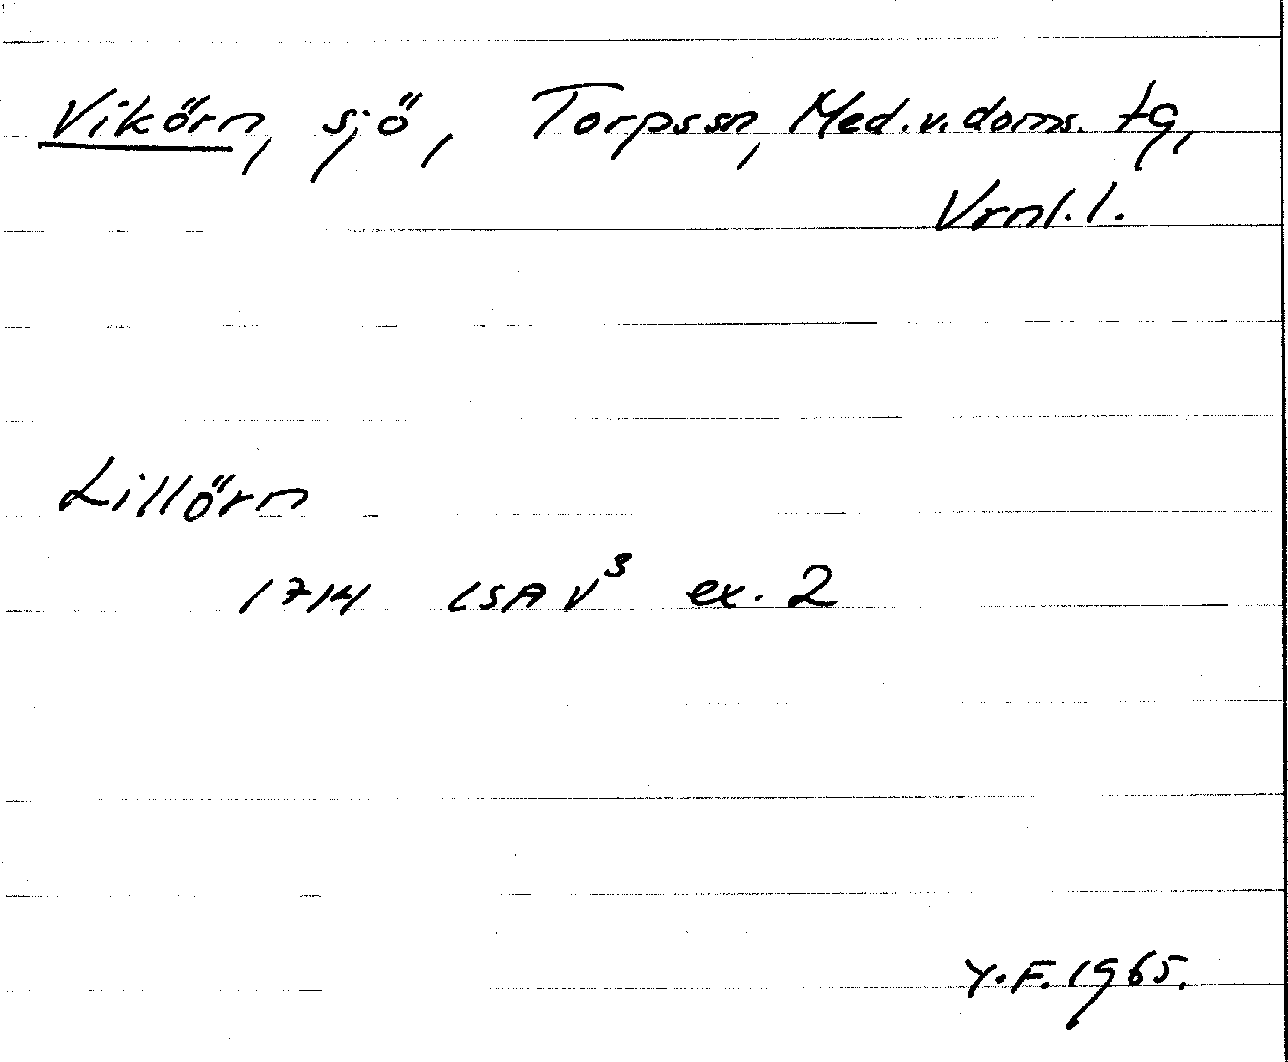 Vikörn, sjö, Torpssn, Med.v.doms. tg,
Vrml.l.
Lillörn
1714 LSA V³ ex. 2
Y.F. 1965.